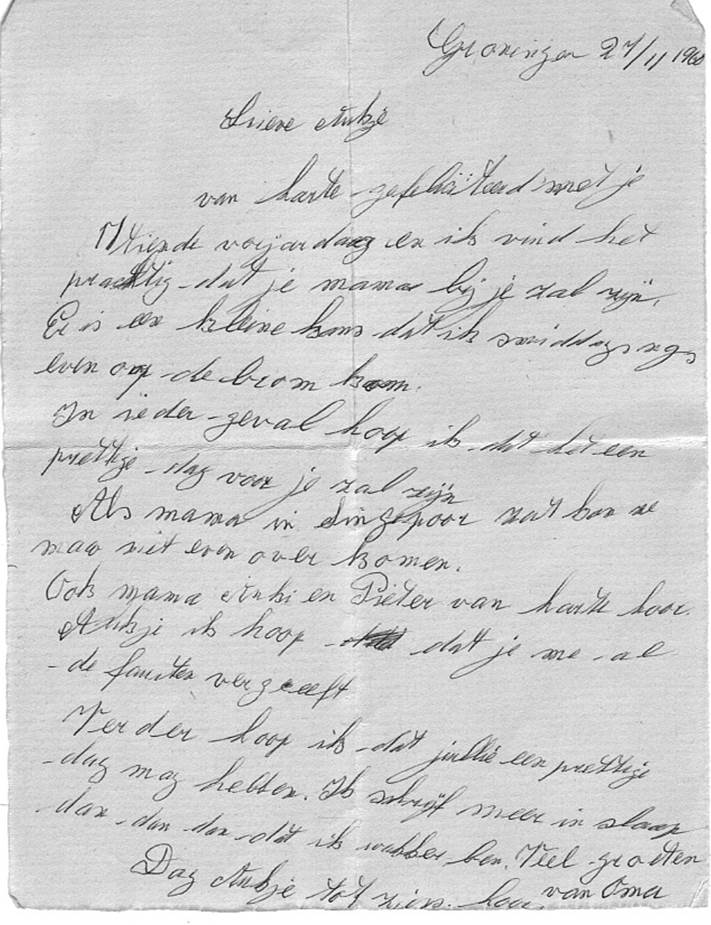 Groningen 27/11 1960
Lieve Aukje
van harte gefeliciteerd met je
tiende verjaardaag en ik vind het
prachtig dat je mama bij je zal zijn.
Er is een kleine kans dat ik smiddagsngs
even op de brom kom.
In ieder geval hoop ik dat het een
prettige dag voor je zal zijn
Als mama in Singepoor zat kon ze
maar niet even over komen.
Ook mama Anki en Pieter van harte hoor.
Aukje ik hoop dat je me al
de fauten vergeeft
Verder hoop ik dat jullie een prettige
dag mag hebben. Ik schrijf meer in slaap
dan dan dan dat ik wakker ben. Veel groeten
van Oma
Dag Aukje tot ziens hoor